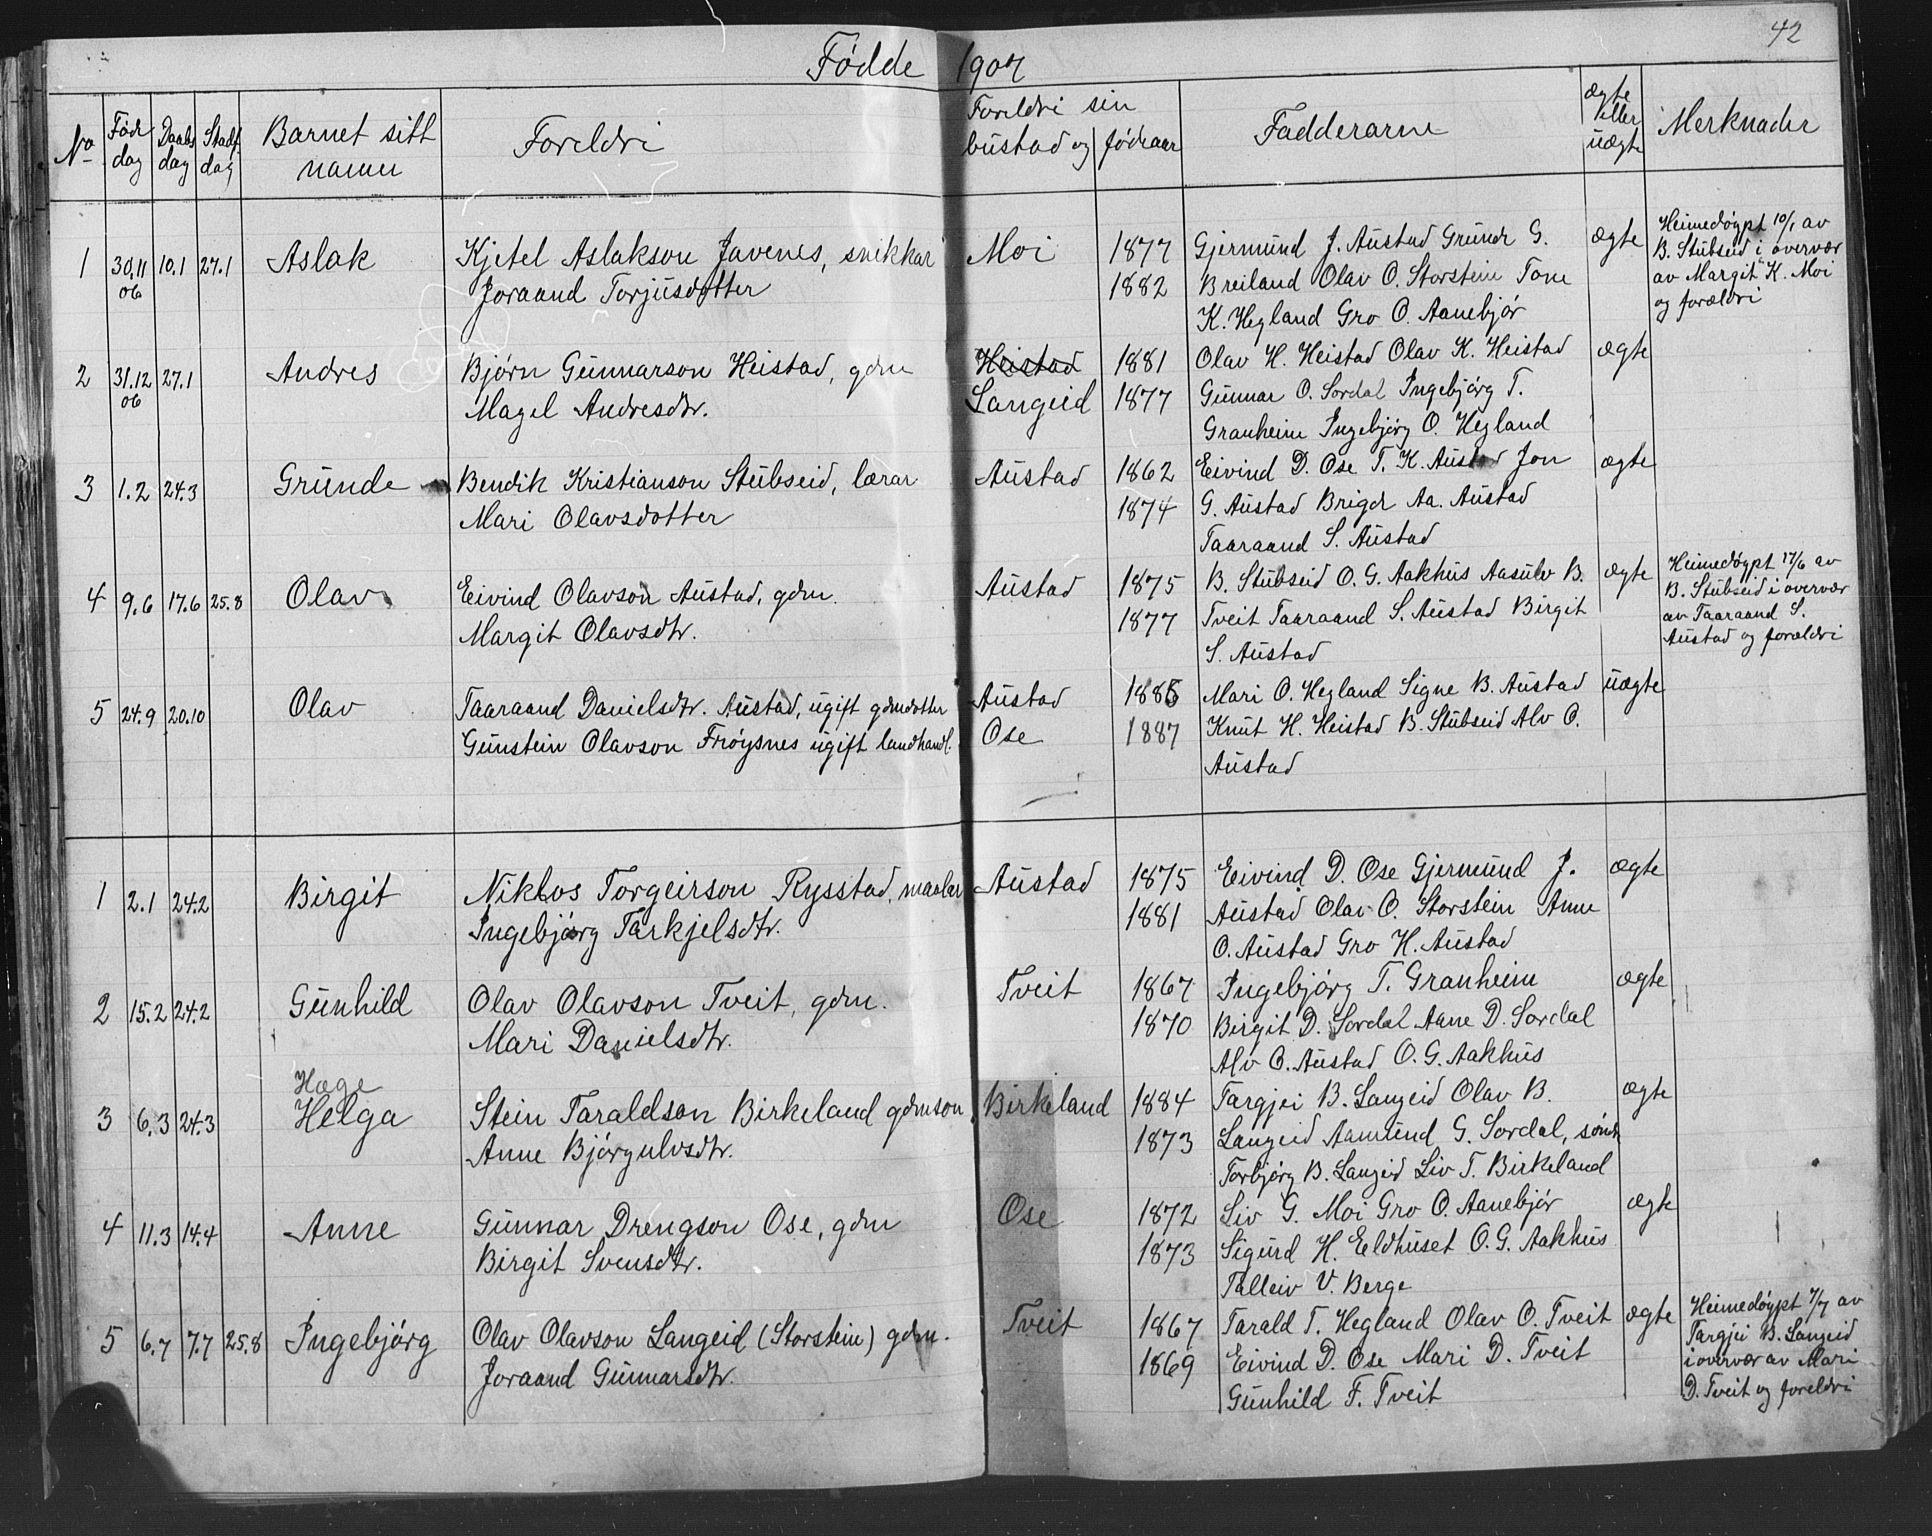 42
Fødde 1907
No
Fød dag
Daabs dag
Stadf. dag
Barnet sitt namn
Foreldri
Foreldri sin bustad og fødeaar
Fadderarne
ægte eller uægte
Merknader
1 30.11 06 10.1 27.1 Aslak
Kjetel Aslakson Javenes, snikkar
Joraand Torjusdotter
Moi 1877
1882
Gjermund J. Austad Grunde G.
Breiland Olav O. Storstein Tone
K. Hegland Gro O. Aanebjør
ægte
Heimedøypt 10/1 av
B. Stubseid i overvær
av Margit K. Moi
og forældri
2 31.12 06 27.1 Andres
Bjørn Gunnarson Heistad, gdm
Magel Andresdtr.
Heistad 1881
Langeid 1877
Olav H. Heistad Olav K. Heistad
Gunnar O. Sordal Ingebjørg T.
Granheim Ingebjørg O. Hegland
ægte
3 1.2 24.3 Grunde
Bendik Kristianson Stubseid, lærar
Mari Olavsdotter
Austad 1862
1874
Eivind D. Ose T. K. Austad Jon
G. Austad Briger Aa. Austad
Taaraand S. Austad
ægte
4 9.6 17.6 25.8 Olav
Eivind Olavson Austad, gdm.
Margit Olavsdtr.
Austad 1875
1877
B. Stubseid O. G. Aakhus Aasulv B.
Tveit Taaraand S. Austad Birgit
S. Austad
ægte
Heimedøypt 17/6 av
B. Stubseid i overvær
av Taaraand S.
Austad og forældri
5 24.9 20.10 Olav
Taaraand Danielsdtr. Austad, ugift gdmdotter
Gunstein Olavson Frøysnes ugift landhandl.
Austad
Ose 1887
Mari O. Hegland Signe B. Austad
Knut H. Heistad B. Stubseid Alv O.
Austad
uægte
1 2.1 24.2 Birgit
Niklos Torgeirson Rysstad, maalar
Ingebjörg Tarkjelsdtr.
Austad 1875
1881
Eivind D. Ose Gjermund J.
Austad Olav O. Storstein Anne
O. Austad Gro H. Austad
ægte
2 15.2 24.2 Gunhild
Olav Olavson Tveit, gdm.
Mari Danielsdtr.
Tveit 1867
1870
Ingebjörg T. Granheim
Birgit D. Sordal Aane D. Sordal
Alv O. Austad O. G. Aakhus
ægte
Hæge
3 6.3 24.3 Helga
Stein Taraldson Birkeland gdmson
Anne Bjørgulvsdtr.
Birkeland 1884
1873
Targjei B. Langeid Olav B.
Langeid Aamund G. Sordal, søndr
Torbjørg B. Langeid Liv T. Birkeland
ægte
4 11.3 14.4 Anne
Gunnar Drengson Ose, gdm
Birgit Svensdtr.
Ose 1872
1873
Liv G. Moi Gro O. Aanebjør
Sigurd H. Eldhuset O. G. Aakhus
Talleiv V. Berge
ægte
5 6.7 7.7 25.8 Ingebjörg
Olav Olavson Langeid (Storstein) gdm.
Joraand Gunnarsdtr.
Tveit 1867
1869
Tarald T. Hegland Olav O. Tveit
Eivind D. Ose Mari D. Tveit
Gunhild F. Tveit
ægte
Heimedøypt 7/7 av
Targjei B. Langeid
i overvær av Mari
D. Tveit og foreldri